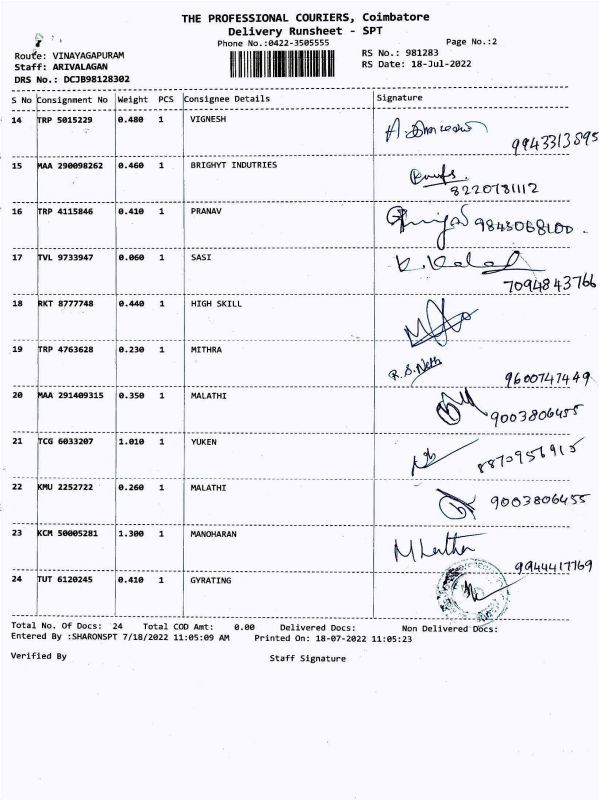 THE PROFESSIONAL COURIERS, Coimbatore
Delivery Runsheet - SPT
Phone No.:0422-3505555
Page No.:2
Route: VINAYAGAPURAM
RS No.: 981283
Staff: ARIVALAGAN
RS Date: 18-Jul-2022
DRS No.: DCJB98128302
S No Consignment No Weight PCS Consignee Details Signature
14 TRP 5015229 0.480 1 VIGNESH
9943313895
15 MAA 290098262 0.460 1 BRIGHYT INDUTRIES
8220781112
16 TRP 4115846 0.410 1 PRANAV 9843068100.
17 TVL 9733947 0.060 1 SASI
7094843766
18 RKT 8777748 0.440 1 HIGH SKILL
19 TRP 4763628 0.230 1 MITHRA
9600747449
20 MAA 291409315 0.350 1 MALATHI
9003806455
21 TCG 6033207 1.010 1 YUKEN
8870956915
22 KMU 2252722 0.260 1 MALATHI 9003806455
23 KCM 50005281 1.300 1 MANOHARAN
9944417769
24 TUT 6120245 0.410 1 GYRATING
Total No. Of Docs: 24 Total COD Amt: 0.00 Delivered Docs: Non Delivered Docs:
Entered By :SHARONSPT 7/18/2022 11:05:09 AM Printed On: 18-07-2022 11:05:23
Verified By Staff Signature